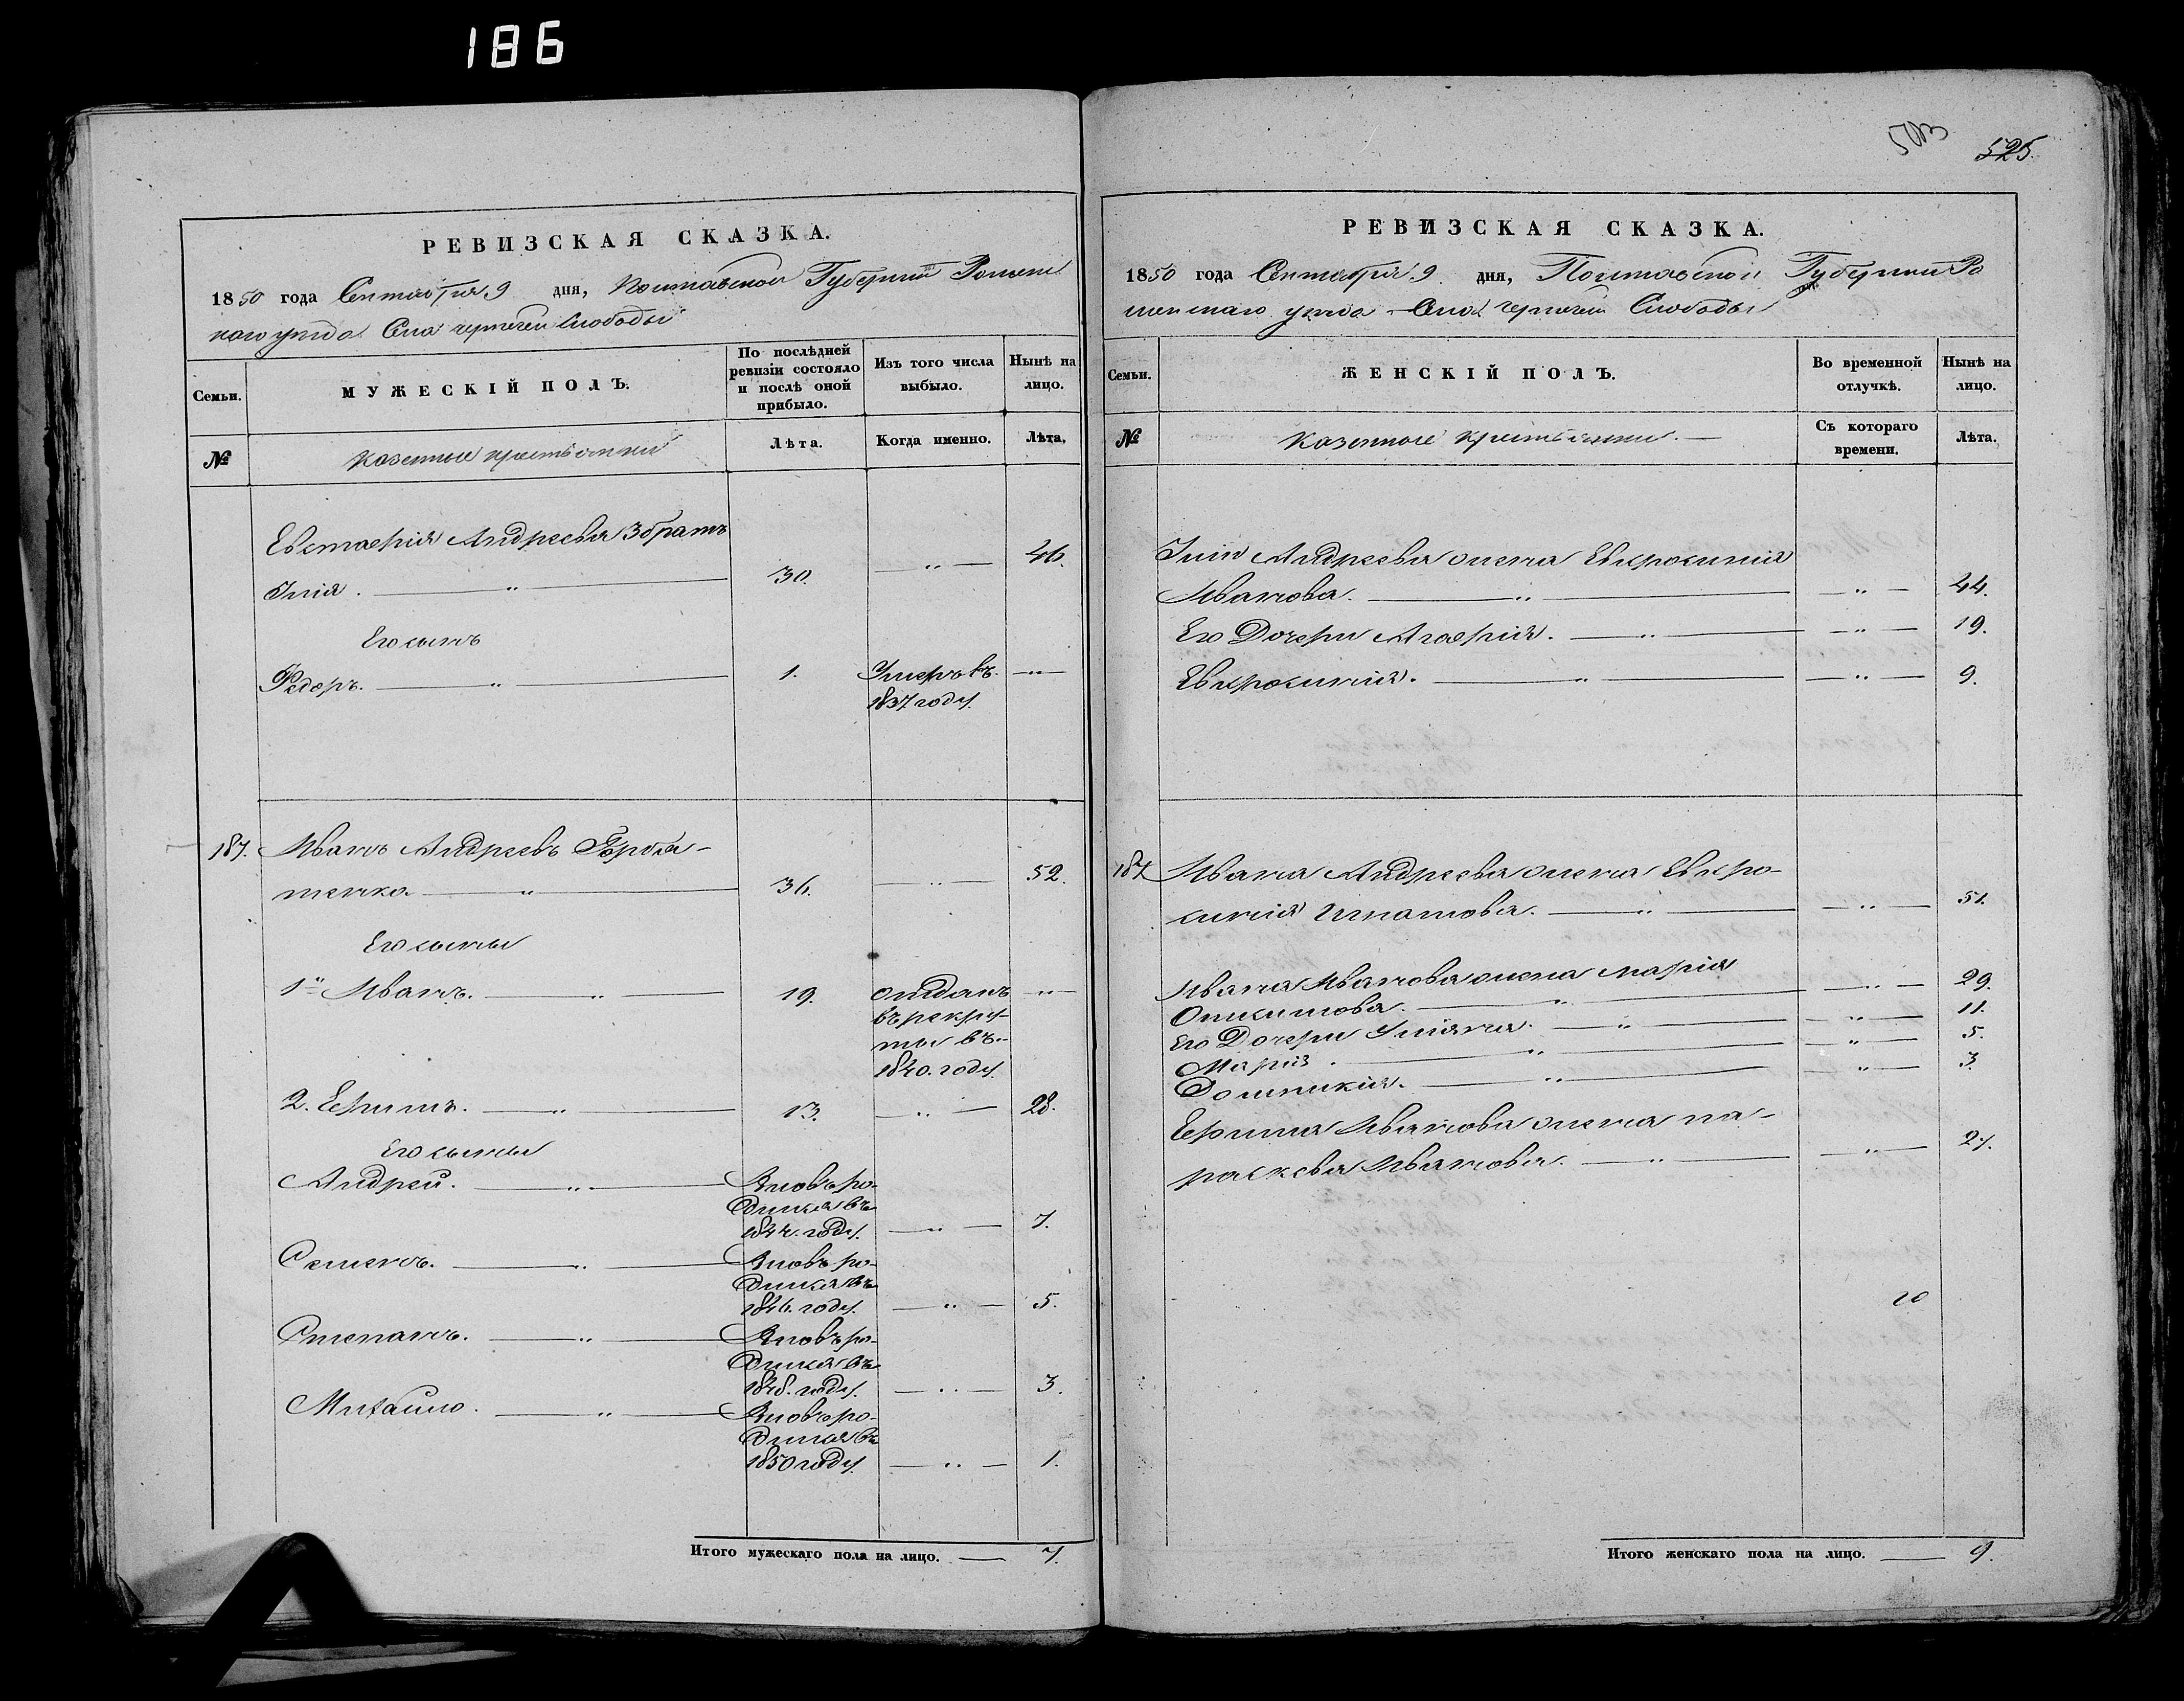 186
РЕВИЗСКАЯ СКАЗКА.
1850 года Сентября 9 дня, Полтавской Губерніи Ромен
кого уезда Села Слободы
Семьи.
МУЖЕСКІЙ ПОЛЪ.
По послѣдней
ревизіи состояло
и послѣ оной
прибыло.
Изъ того числа
выбыло.
Нынѣ на
лицо.
№
Казенные крестьянки
Лѣта.
Когда именно.
Лѣта,
Евстафія Андреева 3 братъ
Илія. 30. 46.
Его сынъ
Федоръ. 1. Умеръ въ
1837 году.
187. Иванъ Андреевъ
тенко 36. 52.
Его сыны
1й Иванъ. 19. отданъ
въ рекру-
ты въ
1840. году.
2. Ефимъ. 13. 28.
Его сыны
Андрей. Вновь ро-
дился въ
1844. году. 7.
Семенъ. Вновь ро-
дился въ
1846. году. 5.
Степанъ. Вновь ро-
дился въ
1848. году. 3.
Михайло. Вновь ро-
дился въ
1850 году. 1.
Итого мужескаго пола на лицо. 7.
503
525.
РЕВИЗСКАЯ СКАЗКА.
1850 года Сентября 9 дня, Полтавской Губерніи Ро
менскаго уезда Села Слободы
Семьи.
ЖЕНСКІЙ ПОЛЪ.
Во временной
отлучкѣ.
Нынѣ на
лицо.
№
Казенные крестьянки.
Съ котораго
времени.
Лѣта.
Иліи Андреева жена Евфросинія
Иванова. 44.
Его Дочери Агафія. 19.
Евфросинія. 9.
187 Ивана Андреева жена Евфро-
синія Игнатова. 51.
Ивана Иванова жена Марія
29.
Его Дочери Уліяна. 11.
Марія 5.
Домникія. 3.
Ефима Иванова жена па-
раскева Иванова. 27.
Итого женскаго пола на лицо. 9.